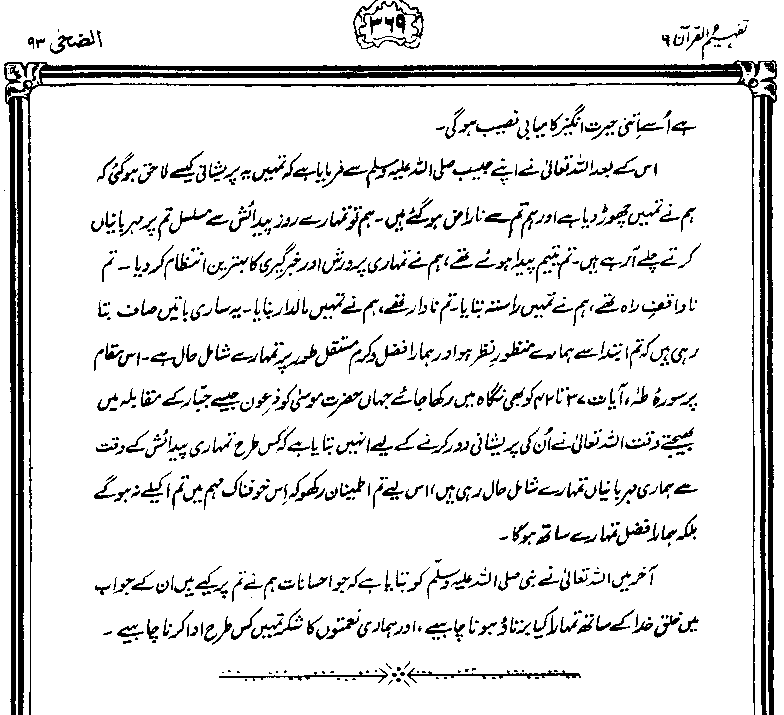 تفہیم القرآن ۶
۳۶۹
الضحیٰ ۹۳
ہے اُسے اتنی حیرت انگیز کامیابی نصیب ہوگی۔
اس کے بعد اللہ تعالیٰ نے اپنے حبیب صلی اللہ علیہ وسلم سے فرمایا ہے کہ تمہیں یہ پریشانی کیسے لاحق ہوگئی کہ
ہم نے تمہیں چھوڑ دیا ہے اور ہم تم سے ناراض ہو گئے ہیں۔ ہم تو تمہارے روزِ پیدائش سے مسلسل تم پر مہربانیاں
کرتے چلے آ رہے ہیں۔ تم یتیم پیدا ہوئے تھے، ہم نے تمہاری پرورش اور خبر گیری کا بہترین انتظام کر دیا۔ تم
ناواقفِ راہ تھے، ہم نے تمہیں راستہ بتایا۔ تم نادار تھے، ہم نے تمہیں مالدار بنایا۔ یہ ساری باتیں صاف بتا
رہی ہیں کہ تم ابتدا سے ہمارے منظورِ نظر ہو اور ہمارا فضل و کرم مستقل طور پر تمہارے شامل حال ہے۔ اس مقام
پر سورۂ طٰہٰ، آیات ۳۷ تا ۴۲ کو بھی نگاہ میں رکھا جائے جہاں حضرت موسیٰ کو فرعون جیسے جبّار کے مقابلہ میں
بھیجتے وقت اللہ تعالیٰ نے اُن کی پریشانی دور کرنے کے لیے انہیں بتایا ہے کہ کس طرح تمہاری پیدائش کے وقت
سے ہماری مہربانیاں تمہارے شامل حال رہی ہیں، اس لیے تم اطمینان رکھو کہ اِس خوفناک مہم میں تم اکیلے نہ ہو گے
بلکہ ہمارا فضل تمہارے ساتھ ہوگا۔
آخر میں اللہ تعالیٰ نے نبی صلی اللہ علیہ وسلّم کو بتایا ہے کہ جو احسانات ہم نے تم پر کیے ہیں ان کے جواب
میں خلقِ خدا کے ساتھ تمہارا کیا برتاؤ ہونا چاہیے، اور ہماری نعمتوں کا شکر تمہیں کس طرح ادا کرنا چاہیے۔